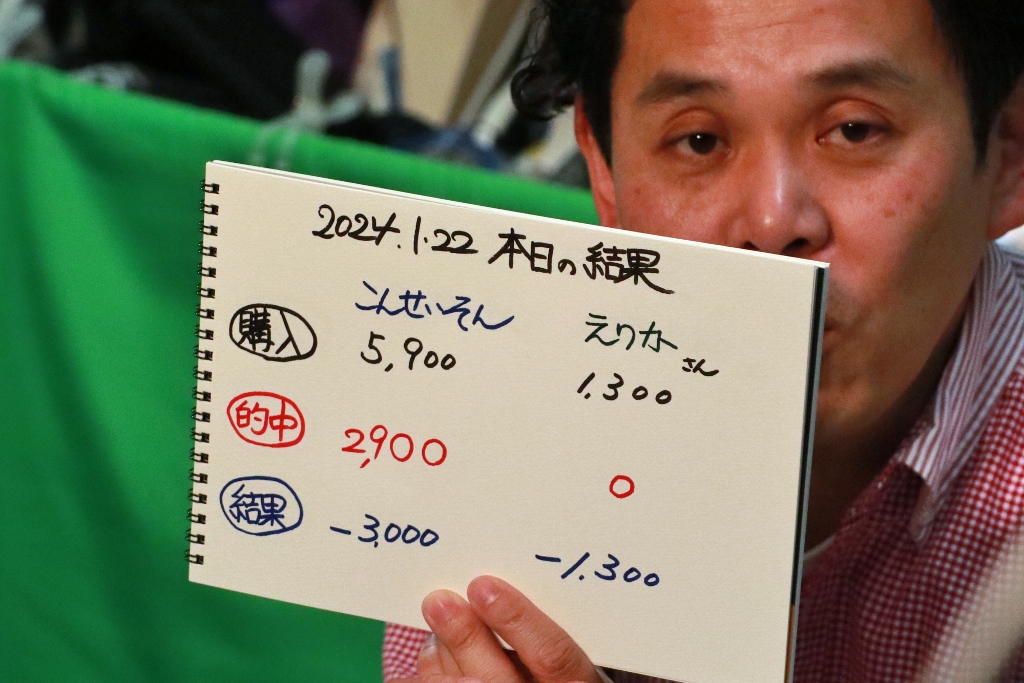 2024.1.22 本日の結果
こんせいそん えりかさん
購入 5,900 1,300
的中 2,900 0
結果 -3,000 -1,300